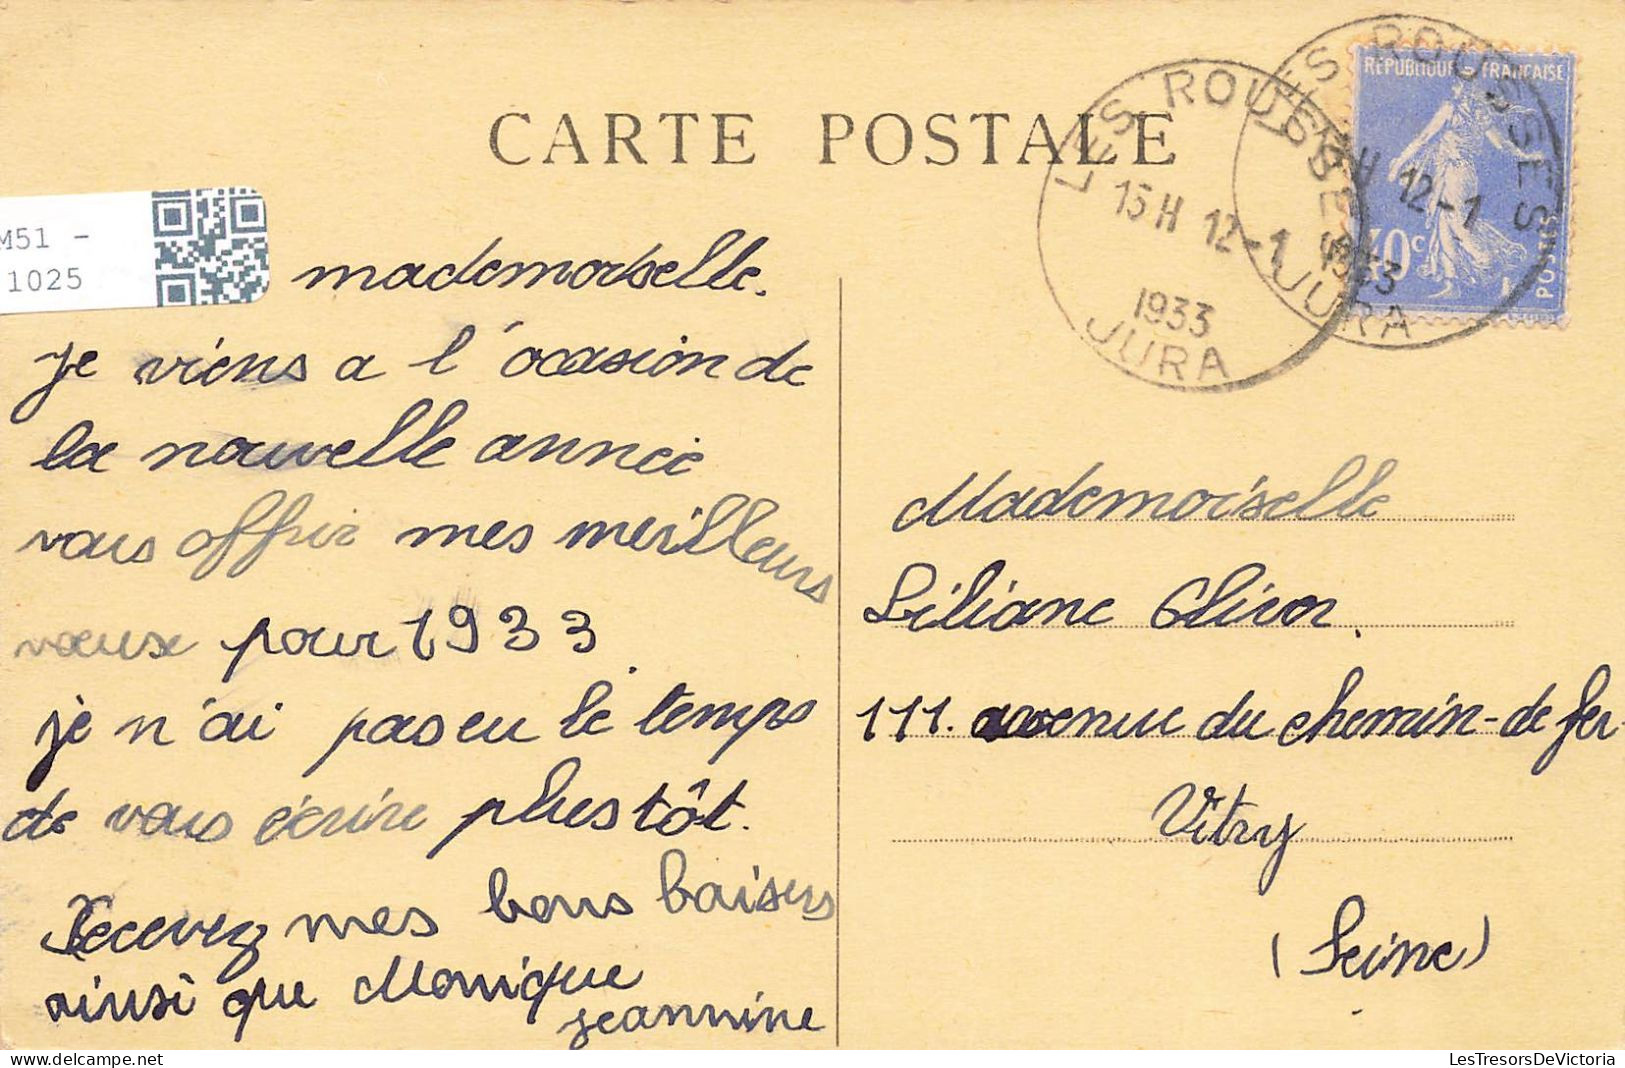 CARTE POSTALE
M51 -
1025
mademoiselle.
je viens a l'ocasion de
la nouvelle année
vous offrir mes meilleurs
voeux pour 1933.
je n'ai pas eu le temps
de vous écrire plus tôt.
Recevez mes bons baisers
ainsi que Monique
jeannine
LES ROUSSES
15H 12-1
1933
JURA
LES ROUSSES
H 12-1
1933
JURA
REPUBLIQUE FRANCAISE
40c
POSTES
Mademoiselle
Liliane
111. avenue du chemin-de fer
Vitry
(Seine)
LesTresorsDeVictoria